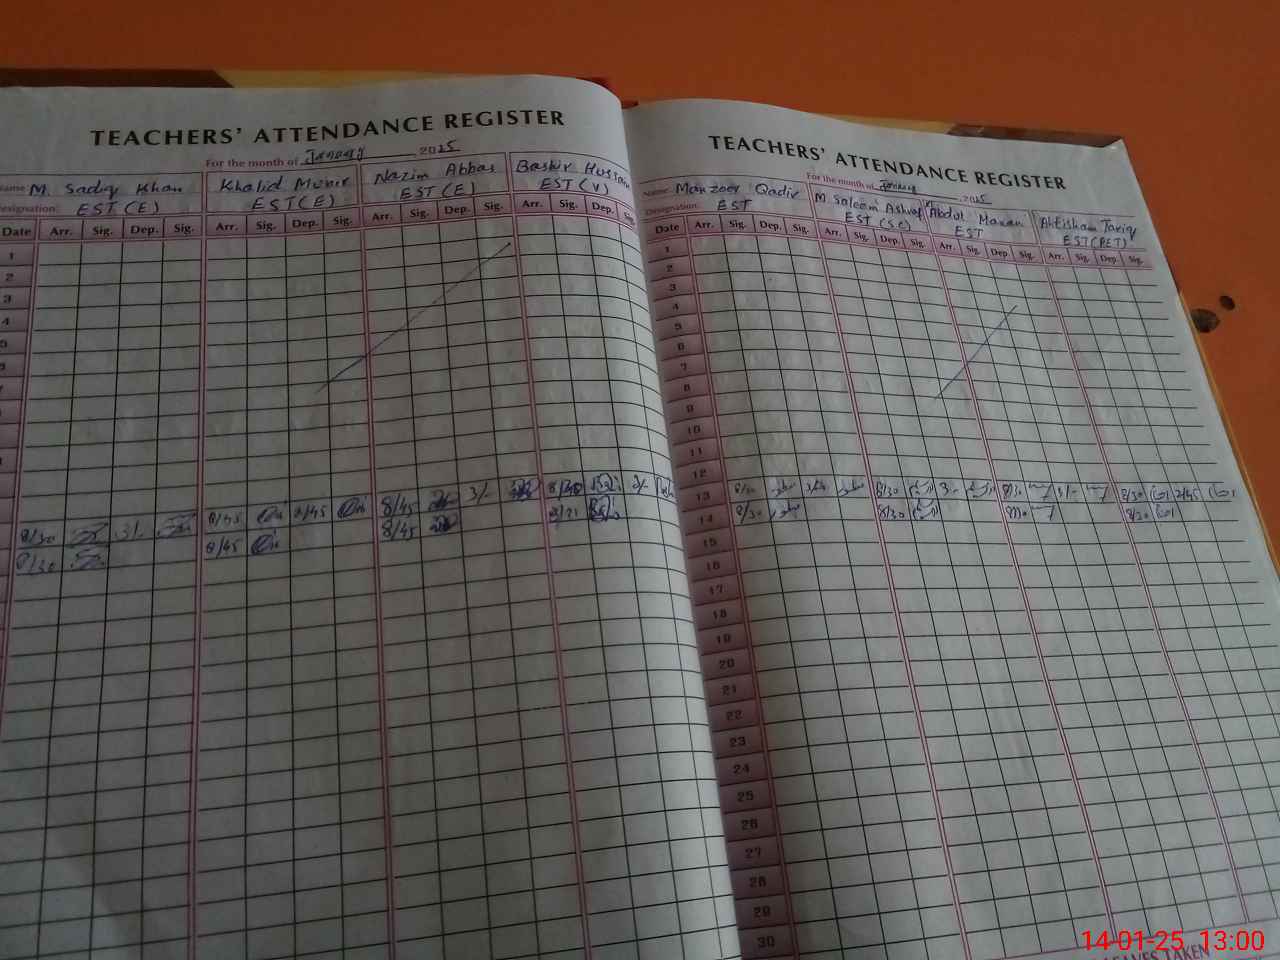 TEACHERS' ATTENDANCE REGISTER
For the month of January 2025
Name M. Sadiq Khan Khalid Munir Nazim Abbas Bashir Hussain
Designation: EST(E) EST(E) EST(E) EST(V)
Date Arr. Sig. Dep. Sig. Arr. Sig. Dep. Sig. Arr. Sig. Dep. Sig. Arr. Sig. Dep. Sig.
1
2
3
4
5
8/30 3/- 8/45 2/45 8/45 3/-
8/30 8/45 8/45
TEACHERS' ATTENDANCE REGISTER
For the month of January 2025
Name: Manzoor Qadir M Saleem Ashraf Abdul Manan Ahtisham Tariq
Designation: EST EST(Sc) EST EST(PET)
Date Arr. Sig. Dep. Sig. Arr. Sig. Dep. Sig. Arr. Sig. Dep. Sig. Arr. Sig. Dep. Sig.
1
2
3
4
5
6
7
8
9
10
11
12
13 8/30 8/30 8/30 3/- 8/30 2/45
14 8/30 8/30 8/30
15
16
17
18
19
20
21
22
23
24
25
26
27
28
29
30
LEAVES TAKEN
14-01-25 13:00